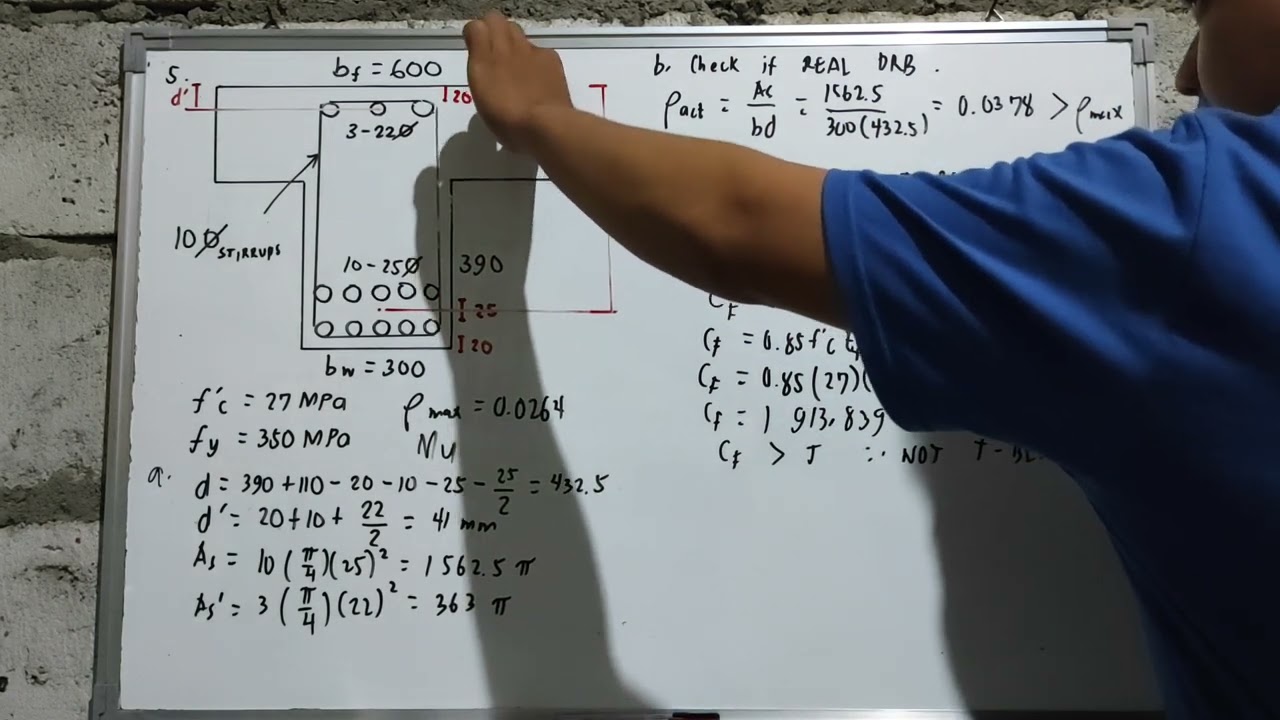 5.
bf = 600
d'
20
3-22Ø
10 Ø STIRRUPS
10-25Ø
390
25
20
bw = 300
f'c = 27 MPa
ρmax = 0.0264
fy = 350 MPa
Mu
a.
d = 390 + 110 - 20 - 10 - 25 - 25/2 = 432.5
d' = 20 + 10 + 22/2 = 41 mm
As = 10 (π/4)(25)² = 1562.5 π
As' = 3 (π/4)(22)² = 363 π
b. Check if REAL DRB.
ρact = As/bd = 1562.5/300(432.5) = 0.0378 > ρmax
Cf
Cf = 0.85 f'c
Cf = 0.85 (27)(
Cf = 1 913,839
Cf > T ∴ NOT T-